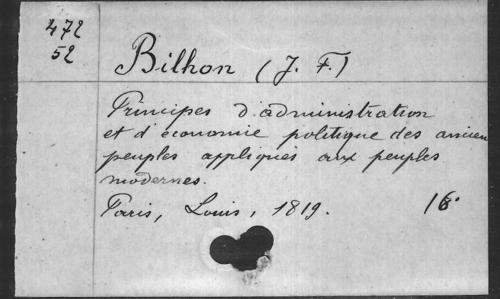 472
52
Bilhon (J. F.)
Principes d'administration
et d'économie politique des ancien
peuples appliqués aux peuples
modernes.
Paris, Louis, 1819. 16°